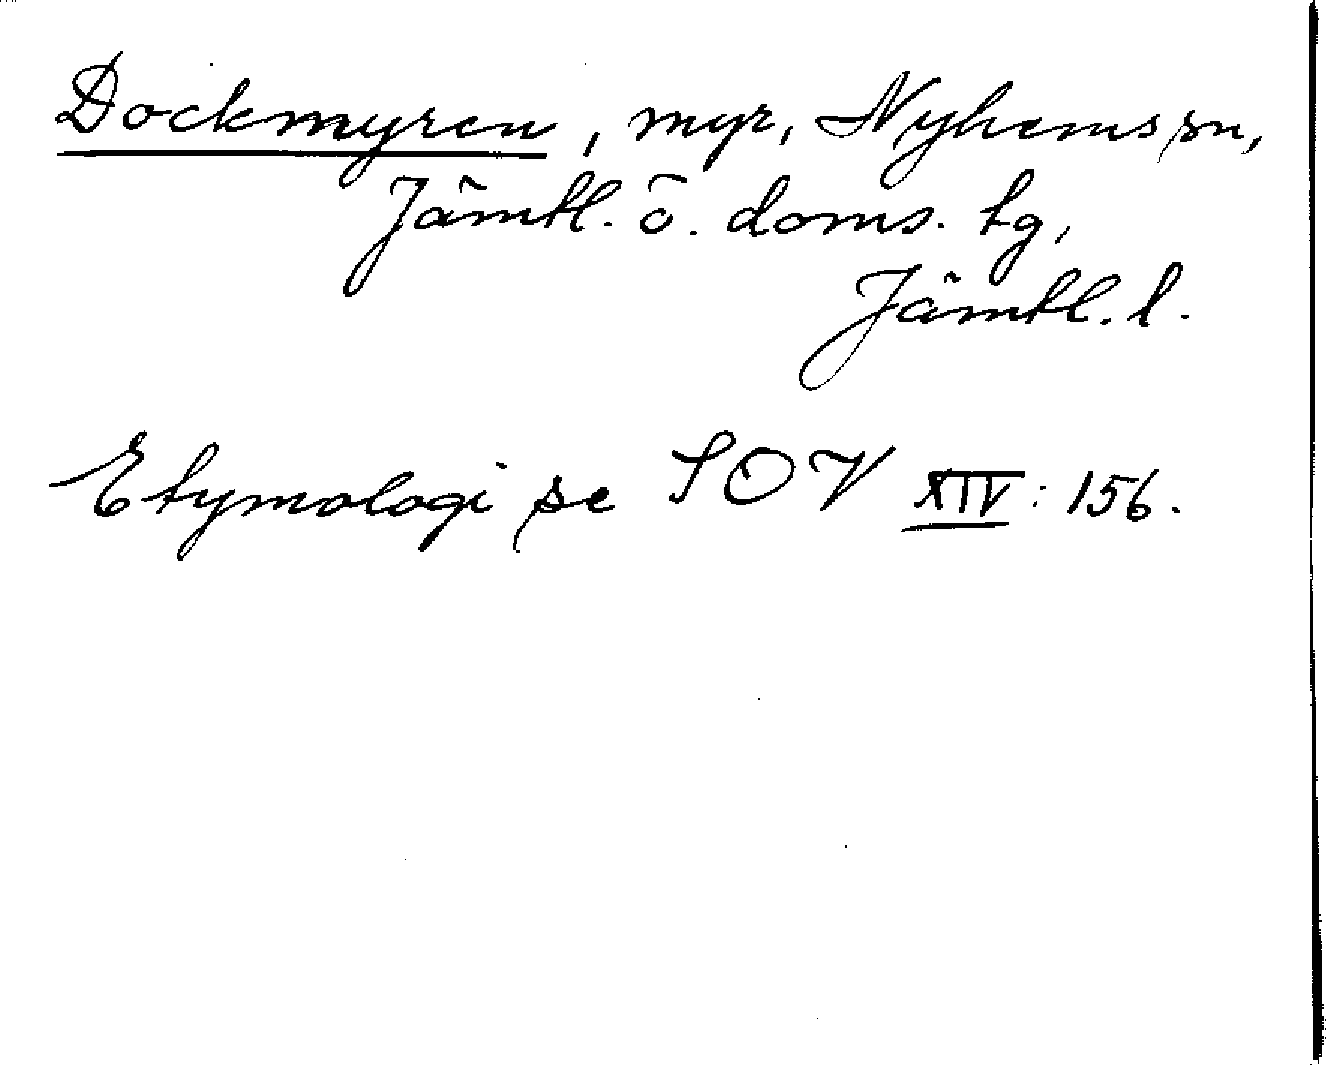 Dockmyren, myr, Nyhems sn,
Jämtl. ö. doms. tg,
Jämtl. l.
Etymologi se SOV XIV: 156.